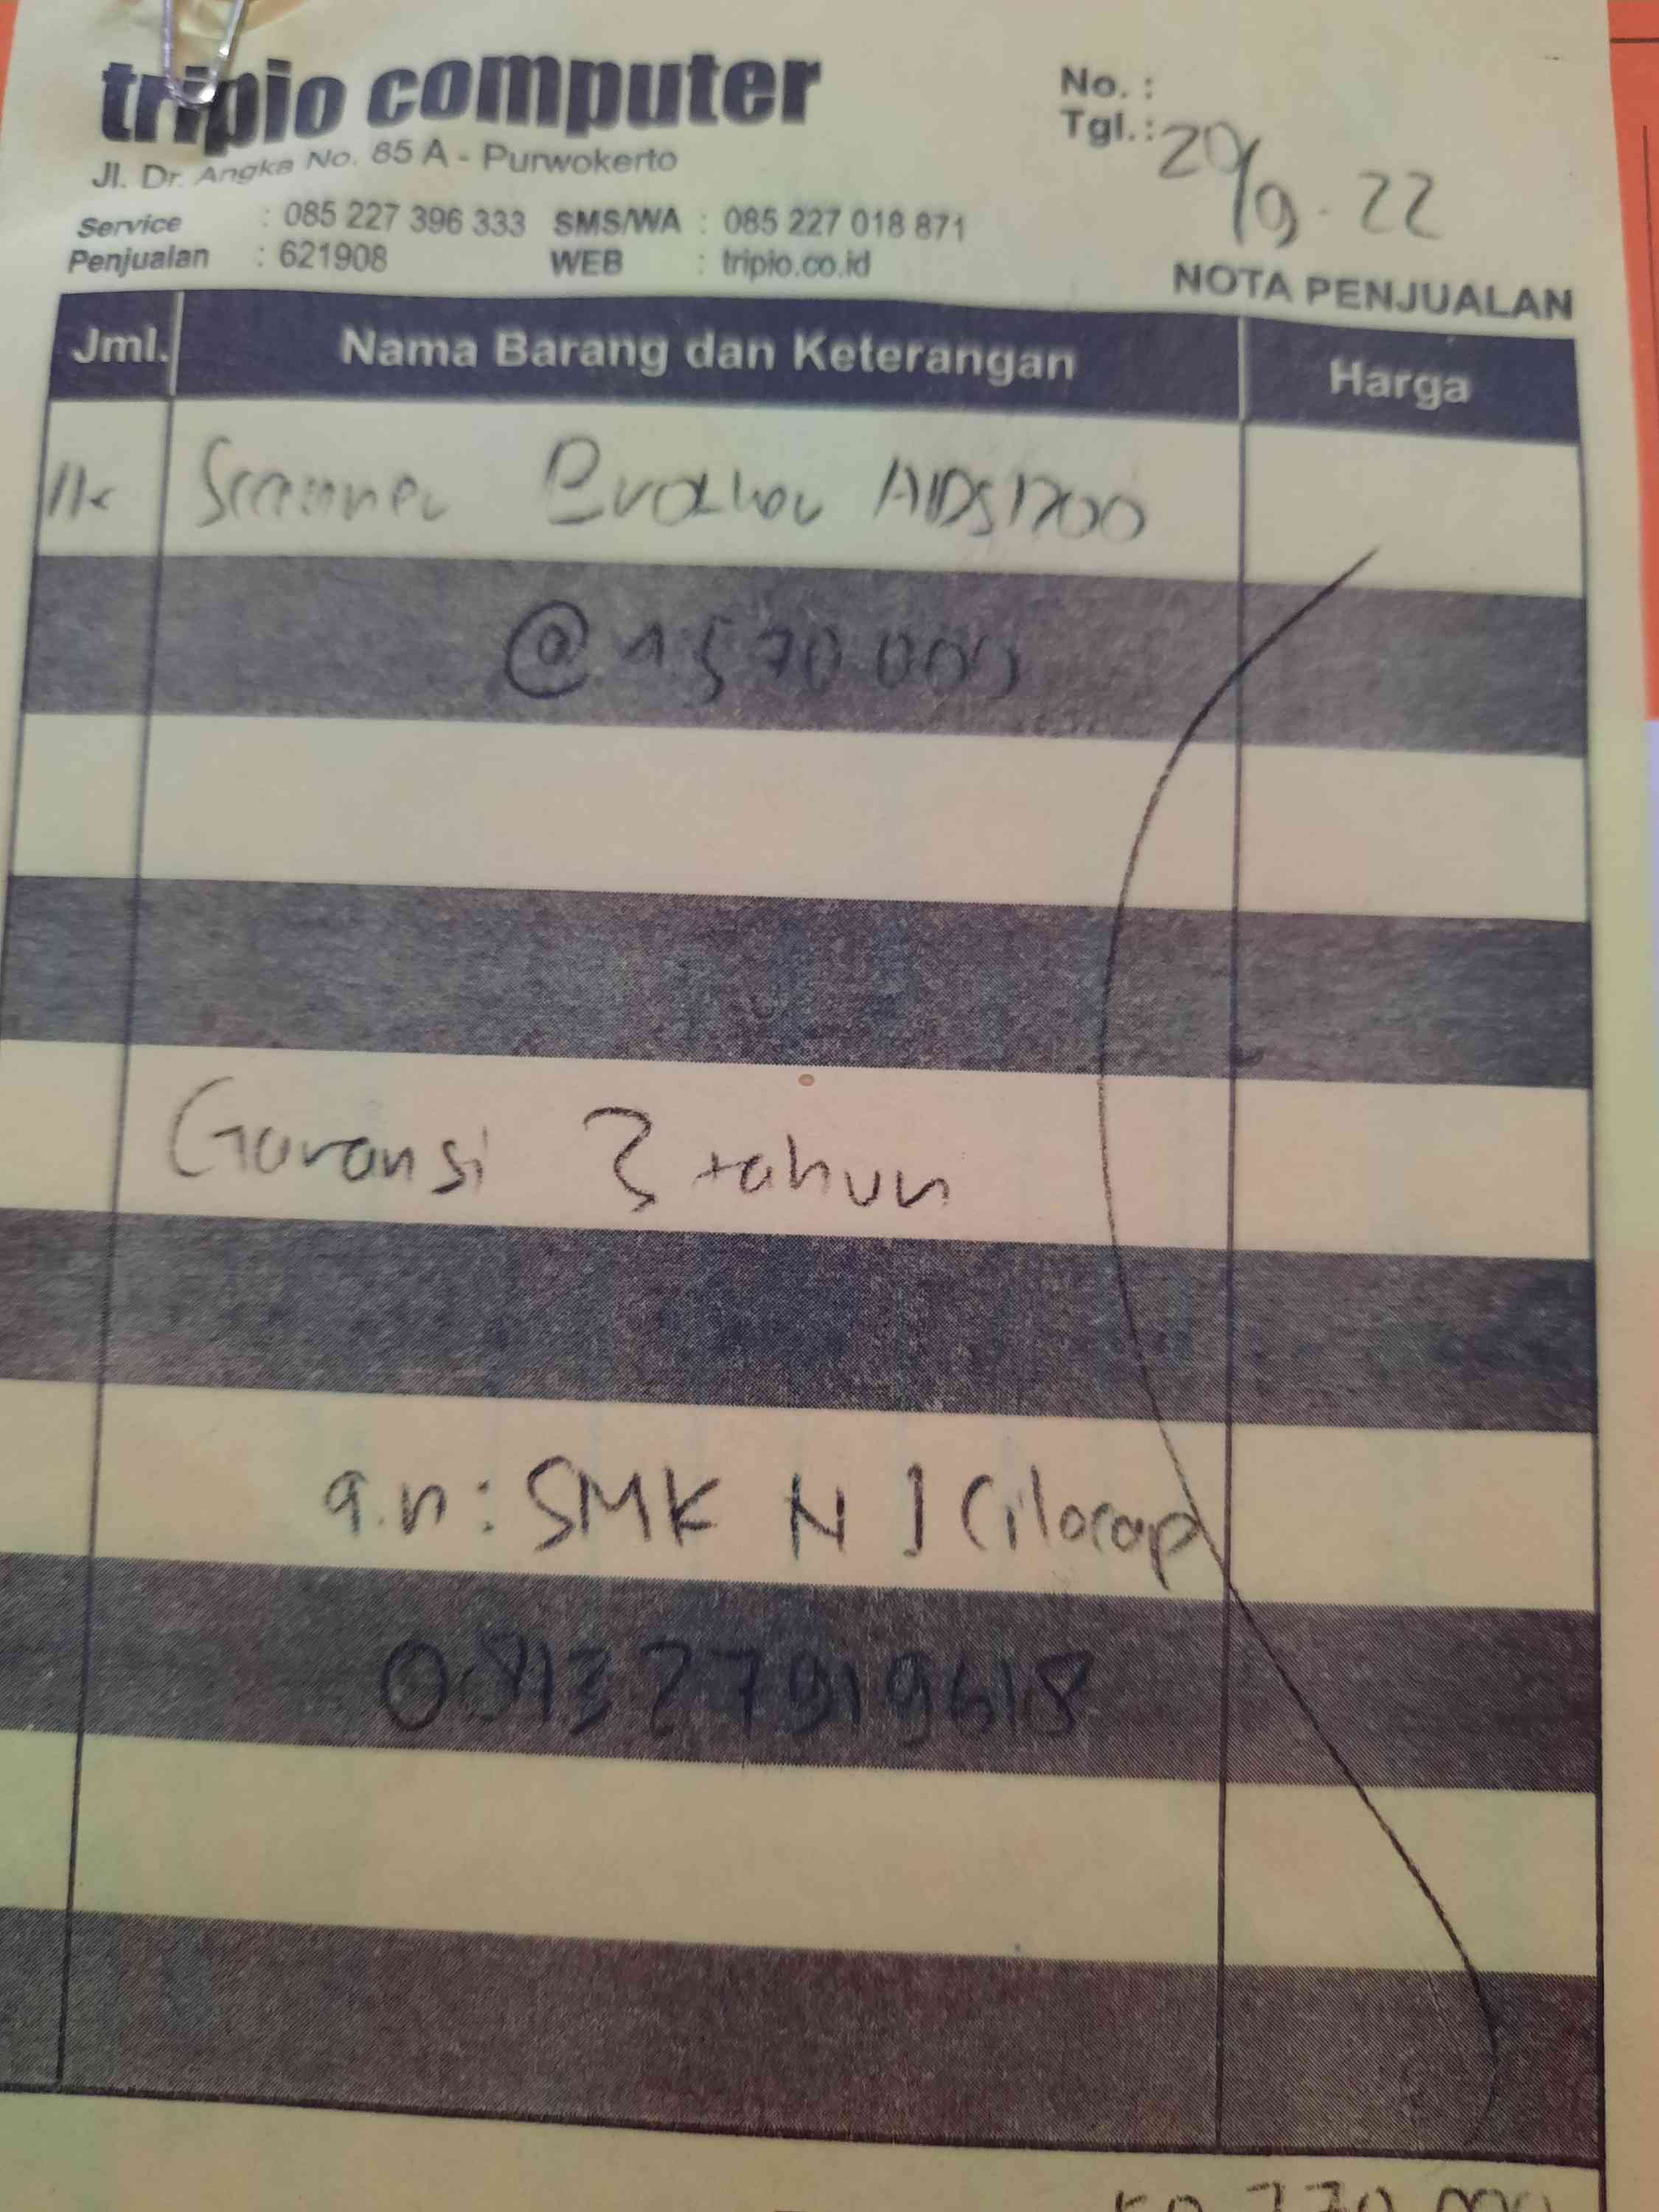 tripio computer
Jl. Dr. Angka No. 85 A - Purwokerto
Service : 085 227 396 333 SMS/WA : 085 227 018 871
Penjualan : 621908 WEB : tripio.co.id
No. :
Tgl. : 20/9.22
NOTA PENJUALAN
Jml. Nama Barang dan Keterangan Harga
Scanner Brother ADS1700
@ 4570.000
Garansi 3 tahun
a.n : SMK N 1 Cilacap
081327919618